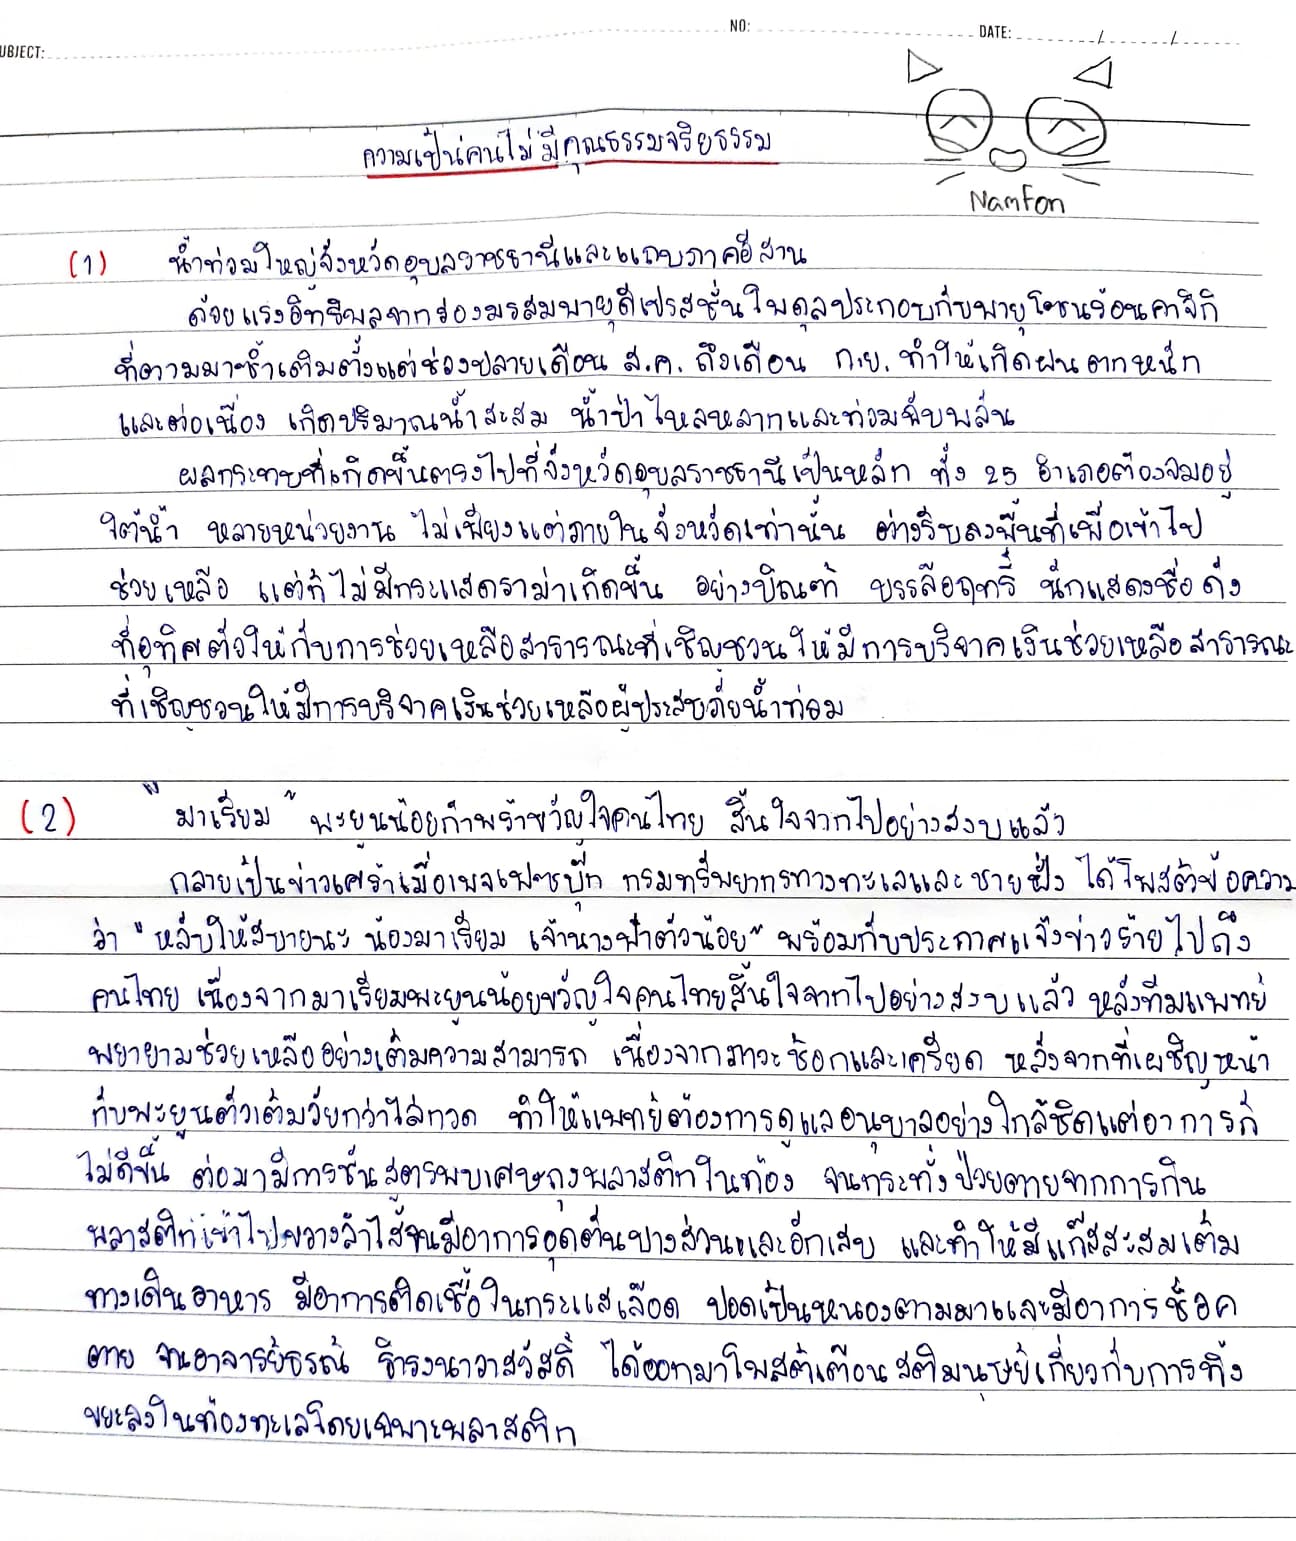 NO:
DATE: / /
UBJECT:
ความเป็นคนไม่มีคุณธรรมจริยธรรม
Namfon
(1) น้ำท่วมใหญ่จังหวัดอุบลราชธานีและแถบภาคอีสาน
ด้วยแรงอิทธิพลจากร่องมรสุมพายุดีเปรสชั่นโพดุลประกอบกับพายุโซนร้อนคาจิกิ
ที่ตามมาซ้ำเติมตั้งแต่ช่วงปลายเดือน ส.ค. ถึงเดือน ก.ย. ทำให้เกิดฝนตกหนัก
และต่อเนื่อง เกิดปริมาณน้ำสะสม น้ำป่าไหลหลากและท่วมฉับพลัน
ผลกระทบที่เกิดขึ้นตรงไปที่จังหวัดอุบลราชธานีเป็นหลัก ทั้ง 25 อำเภอต้องจมอยู่
ใต้น้ำ หลายหน่วยงาน ไม่เพียงแต่ภายในจังหวัดเท่านั้น ต่างรีบลงพื้นที่เพื่อเข้าไป
ช่วยเหลือ แต่ก็ไม่มีกระแสดราม่าเกิดขึ้น อย่างบิณฑ์ บรรลือฤทธิ์ นักแสดงชื่อดัง
ที่อุทิศตัวให้กับการช่วยเหลือสาธารณะที่เชิญชวนให้มีการบริจาคเงินช่วยเหลือสาธารณะ
ที่เชิญชวนให้มีการบริจาคเงินช่วยเหลือผู้ประสบภัยน้ำท่วม
(2) "มาเรียม" พะยูนน้อยกำพร้าขวัญใจคนไทย สิ้นใจจากไปอย่างสงบแล้ว
กลายเป็นข่าวเศร้าเมื่อเพจเฟซบุ๊ก กรมทรัพยากรทางทะเลและชายฝั่ง ได้โพสต์ข้อความ
ว่า "หลับให้สบายนะ น้องมาเรียม เจ้านางฟ้าตัวน้อย" พร้อมกับประกาศแจ้งข่าวร้ายไปถึง
คนไทย เนื่องจากมาเรียมพะยูนน้อยขวัญใจคนไทยสิ้นใจจากไปอย่างสงบแล้ว หลังทีมแพทย์
พยายามช่วยเหลืออย่างเต็มความสามารถ เนื่องจากภาวะช็อกและเครียด หลังจากที่เผชิญหน้า
กับพะยูนตัวเต็มวัยกว่าไล่กวด ทำให้แพทย์ต้องการดูแลอนุบาลอย่างใกล้ชิดแต่อาการก็
ไม่ดีขึ้น ต่อมามีการชันสูตรพบเศษถุงพลาสติกในท้อง จนกระทั่งป่วยตายจากการกิน
พลาสติกเข้าไปขวางลำไส้จนมีอาการอุดตันบางส่วนและอักเสบ และทำให้มีแก๊สสะสมเต็ม
ทางเดินอาหาร มีอาการติดเชื้อในกระแสเลือด ปอดเป็นหนองตามมาและมีอาการช็อค
ตาย จนอาจารย์ธรณ์ ธำรงนาวาสวัสดิ์ ได้ออกมาโพสต์เตือนสติมนุษย์เกี่ยวกับการทิ้ง
ขยะลงในท้องทะเลโดยเฉพาะพลาสติก